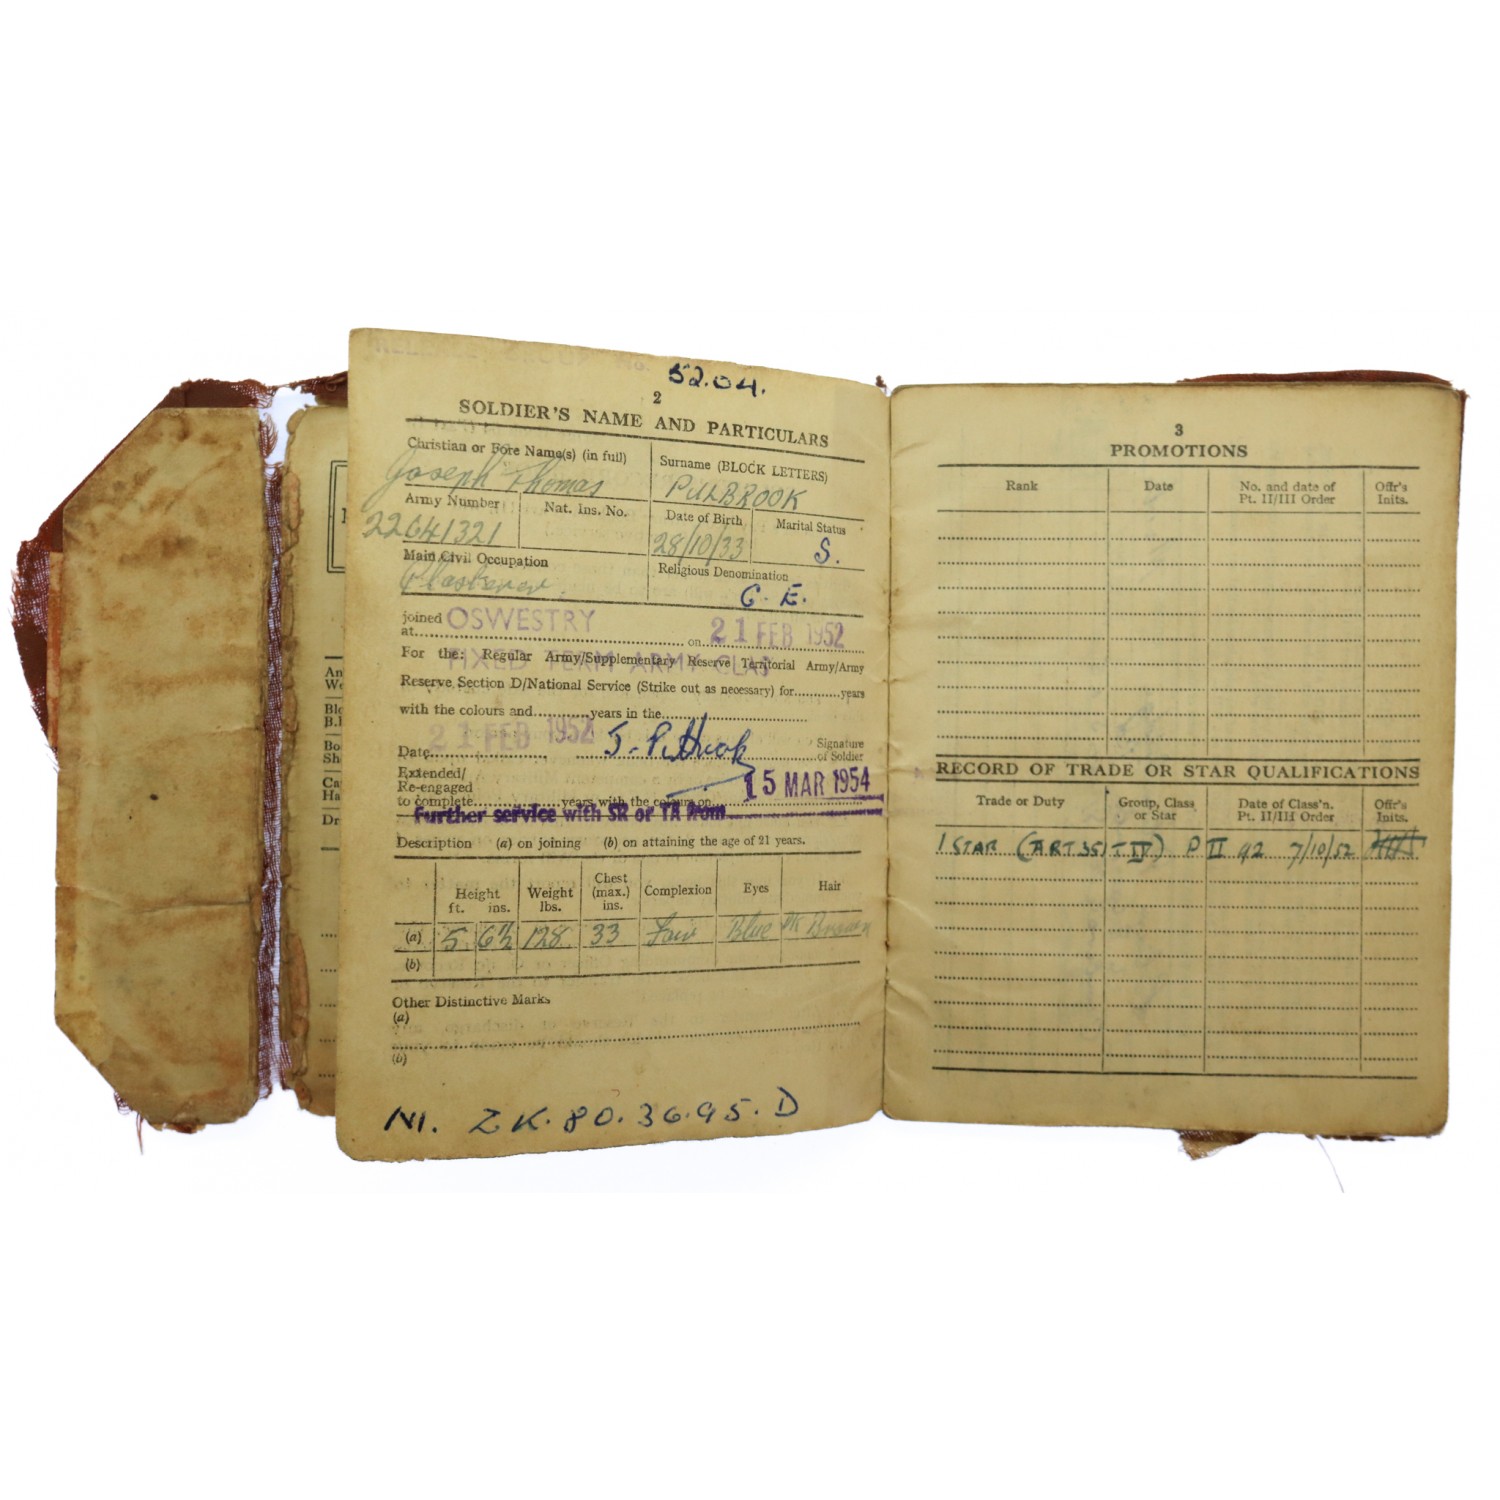 52.04.
2
SOLDIER'S NAME AND PARTICULARS
Christian or Fore Name(s) (in full)
Joseph Thomas
Surname (BLOCK LETTERS)
PULBROOK
Army Number
22641321
Nat. Ins. No.
Date of Birth
28/10/33
Marital Status
S.
Main Civil Occupation
Plasterer.
Religious Denomination
C. E.
joined
at OSWESTRY on 21 FEB 1952
FIXED TERM ARMY CLAS
For the: Regular Army/Supplementary Reserve Territorial Army/Army
Reserve Section D/National Service (Strike out as necessary) for............years
with the colours and............years in the
Date 21 FEB 1952 Signature
of Soldier
Extended/
Re-engaged
to complete............years with the colours on 15 MAR 1954
Further service with SR or TA from
Description (a) on joining (b) on attaining the age of 21 years.
Height
ft. ins.
Weight
lbs.
Chest
(max.)
ins.
Complexion
Eyes
Hair
(a) 5 6½ 128 33 Fair Blue DK Brown
(b)
Other Distinctive Marks
(a)
(b)
NI. ZK.80.36.95.D
3
PROMOTIONS
Rank
Date
No. and date of
Pt. II/III Order
Offr's
Inits.
RECORD OF TRADE OR STAR QUALIFICATIONS
Trade or Duty
Group, Class
or Star
Date of Class'n.
Pt. II/III Order
Offr's
Inits.
1 STAR (ART 35) T IV) P II 42 7/10/52
An
We
Blo
B.I
Bo
Sh
Ca
Ha
Dr